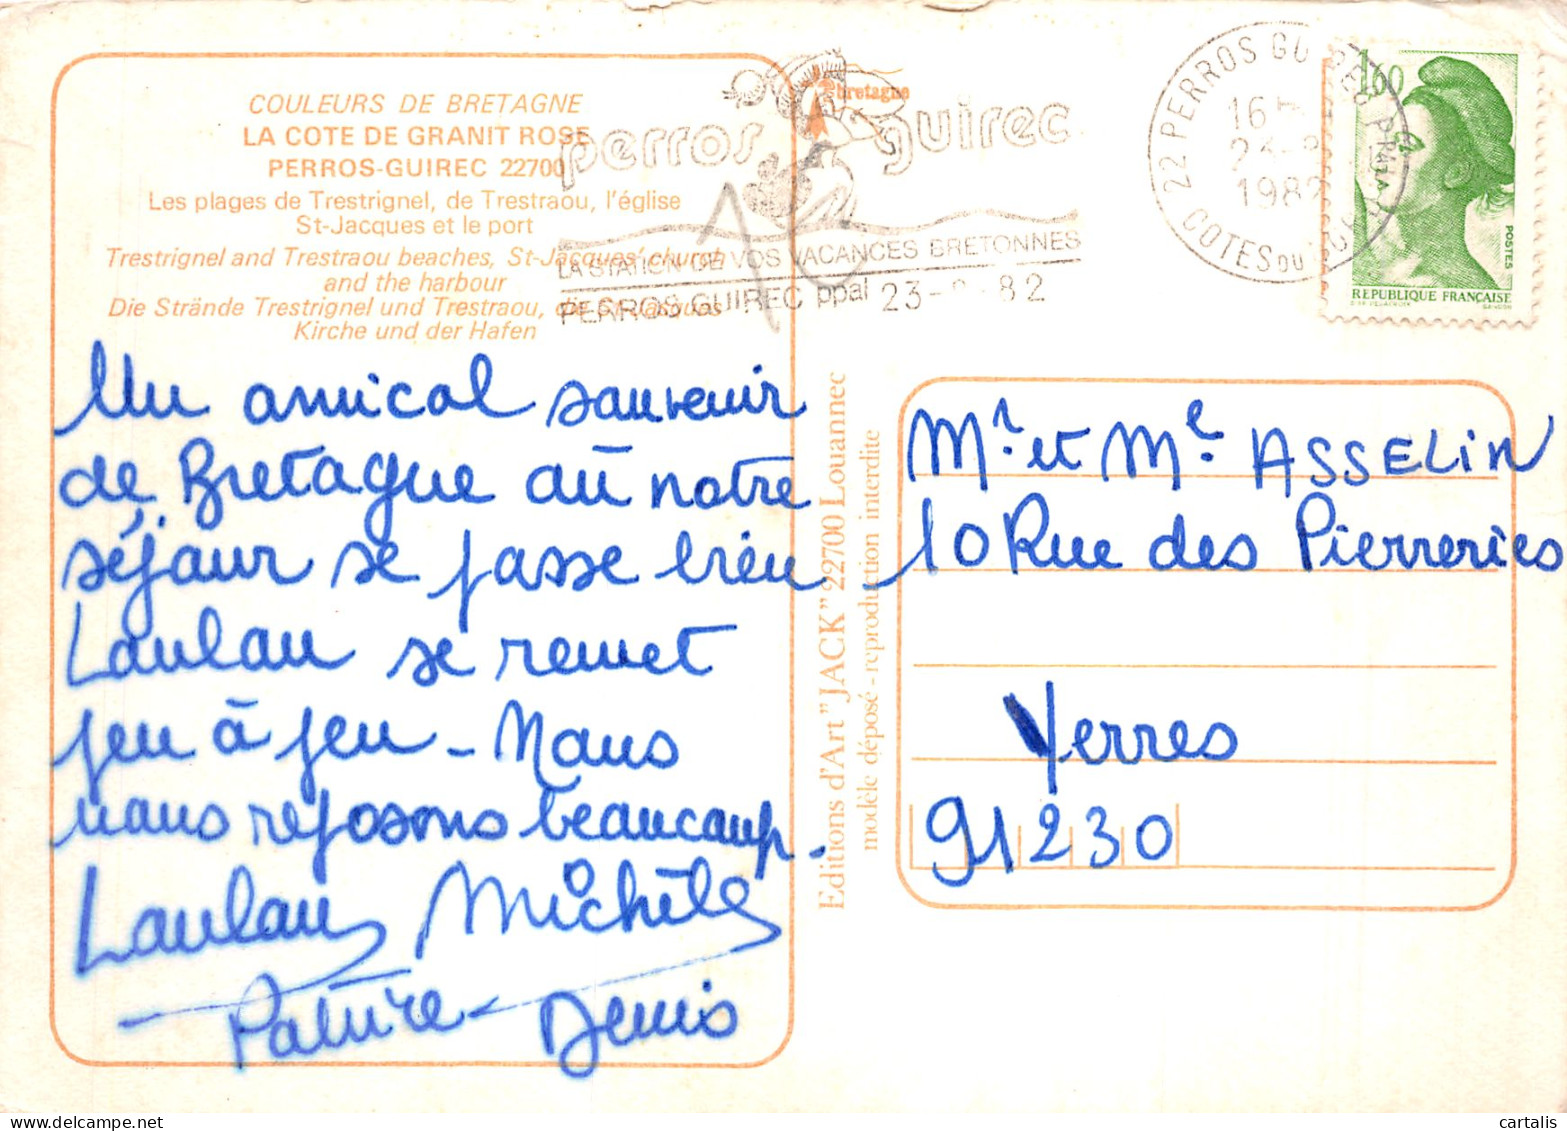 COULEURS DE BRETAGNE
LA COTE DE GRANIT ROSE
PERROS-GUIREC 22700
Les plages de Trestrignel, de Trestraou, l'église
St-Jacques et le port
Trestrignel and Trestraou beaches, St-Jacques' church
and the harbour
Die Strände Trestrignel und Trestraou, die St-Jacques
Kirche und der Hafen
bretagne
perros guirec
LA STATION DE VOS VACANCES BRETONNES
PERROS GUIREC ppal 23- -82
22 PERROS GUIREC PPAL
16 H
1982
COTES DU
1,60
POSTES
REPUBLIQUE FRANÇAISE
Un amical souvenir
de Bretagne où notre
séjour se passe bien
Loulou se remet
peu à peu - Nous
nous reposons beaucoup.
Loulou Michèle
Denis
Editions d'Art "JACK" 22700 Louannec
modèle déposé - reproduction interdite
Mr et Me ASSELIN
10 Rue des Pierreries
Yerres
91230
cartalis